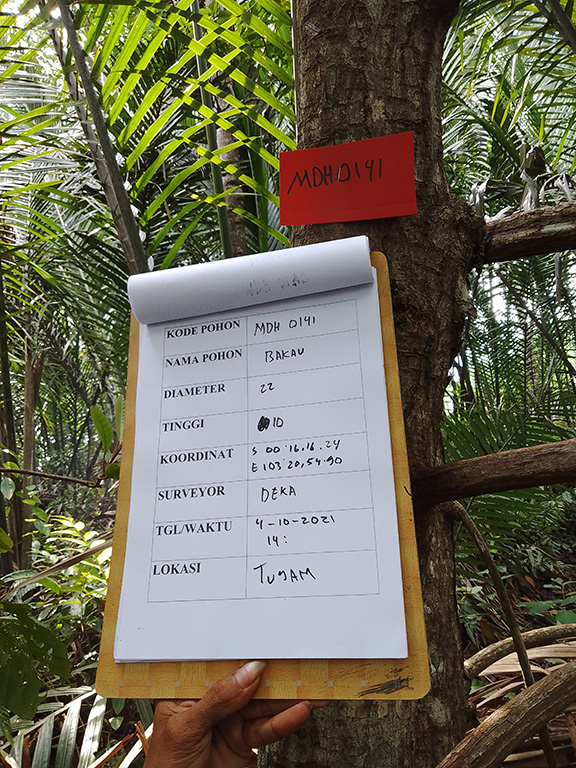 MDH 0141
KODE POHON MDH 0141
NAMA POHON BAKAU
DIAMETER 22
TINGGI 10
KOORDINAT S 00°16.16.24
E 103°20,54.90
SURVEYOR DEKA
TGL/WAKTU 4-10-2021
14:
LOKASI TUJAM